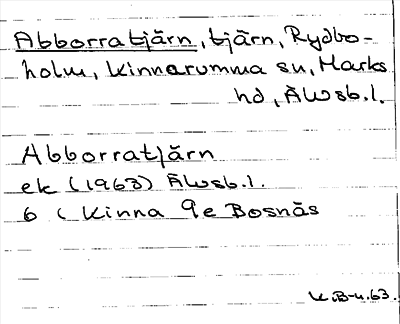 Abborratjärn, tjärn, Rydbo-
holm, Kinnarumma sn, Marks
hd, Älvsb.l.
Abborratjärn
ek (1963) Älvsb.l.
6 ( Kinna 9e Bosnäs
K.B-u.63.